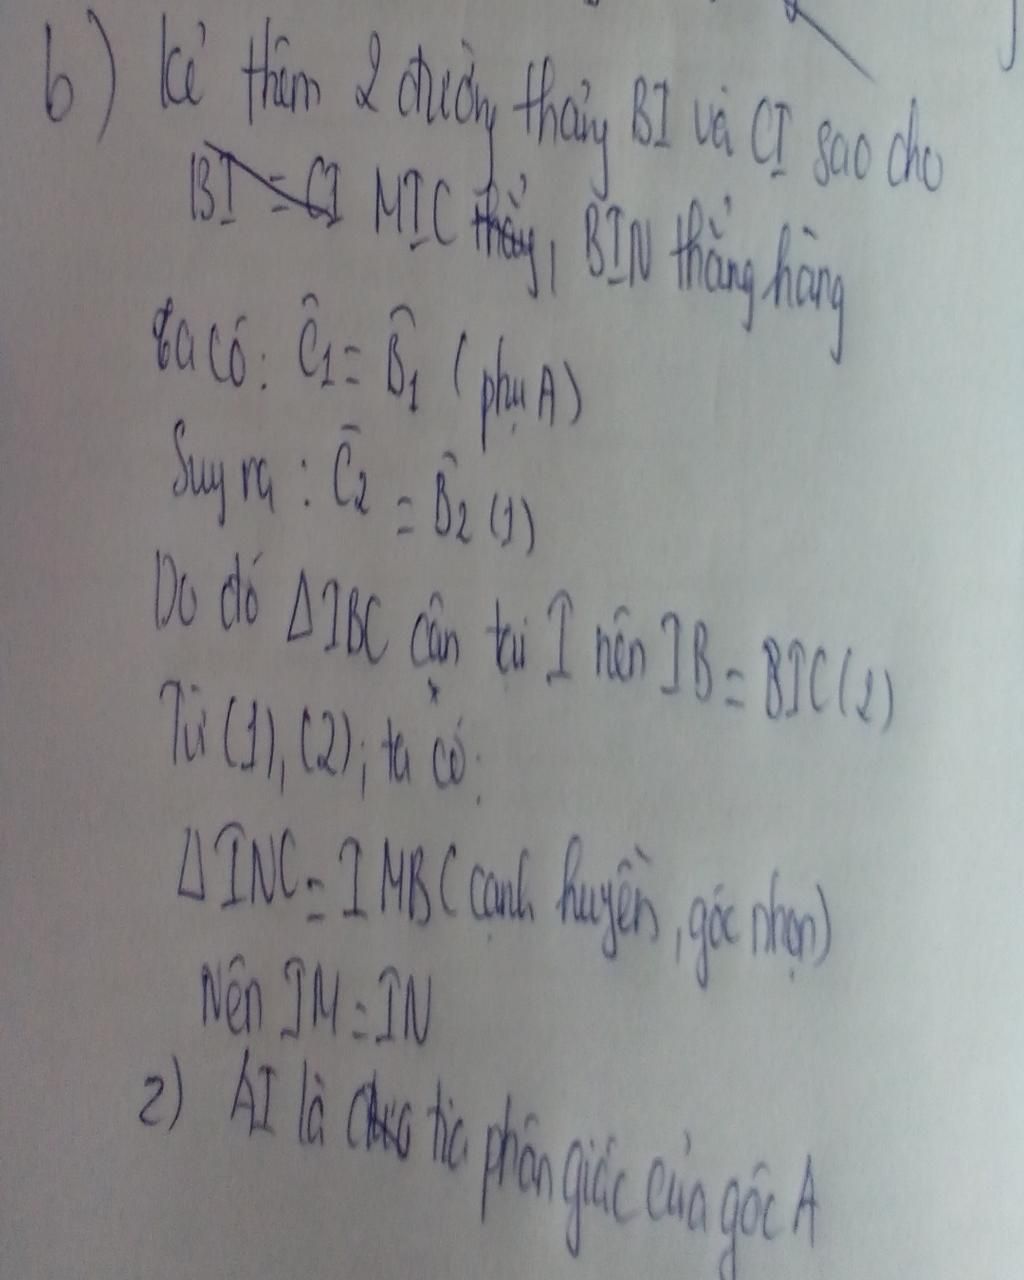 b) Kẻ thêm 2 đường thẳng BI và CI sao cho
BI = CI MIC thẳng, BIN thẳng hàng
Ta có: Ĉ1 = B̂1 (phụ A)
Suy ra: Ĉ2 = B̂2 (1)
Do đó ΔIBC cân tại I nên IB = BIC (2)
Từ (1), (2); ta có:
ΔINC = IMB (cạnh huyền, góc nhọn)
Nên IM = IN
2) AI là tia phân giác của góc A